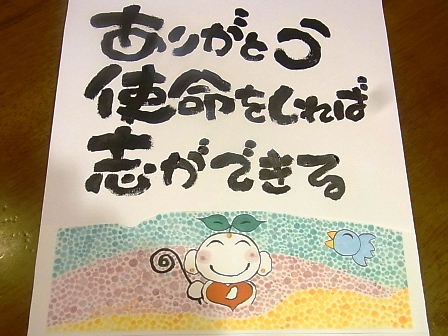 ありがとう
使命をしれば
志ができる